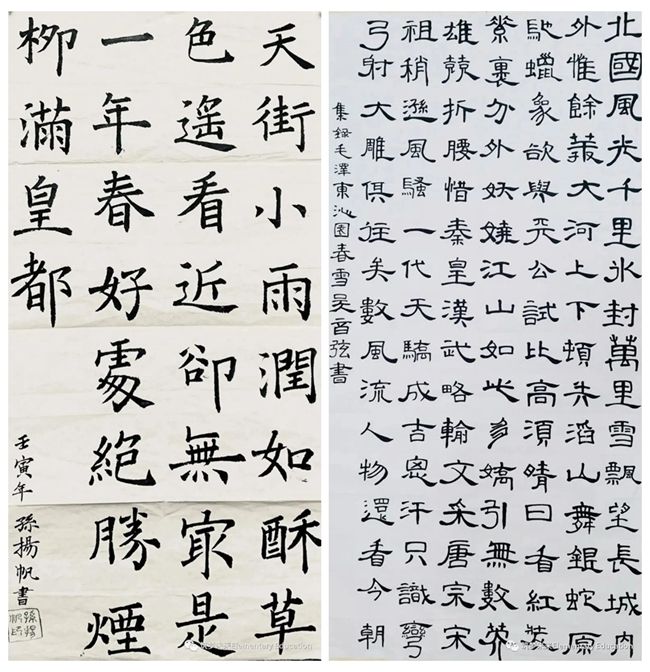 天街小雨潤如酥草
色遙看近卻無㝡是
一年春好處絕勝煙
柳滿皇都
壬寅年 孫揚帆書
北國風光千里冰封萬里雪飄望長城内
外惟餘莽大河上下頓失滔山舞銀蛇原
馳蠟象欲與天公試比高須晴日看紅裝
素裹分外妖嬈江山如此多嬌引無數英
雄競折腰惜秦皇漢武略輸文采唐宗宋
祖稍遜風騷一代天驕成吉思汗只識彎
弓射大雕俱往矣數風流人物還看今朝
集錄毛澤東沁園春雪吴音弦書
Elementary Education
Elementary Education